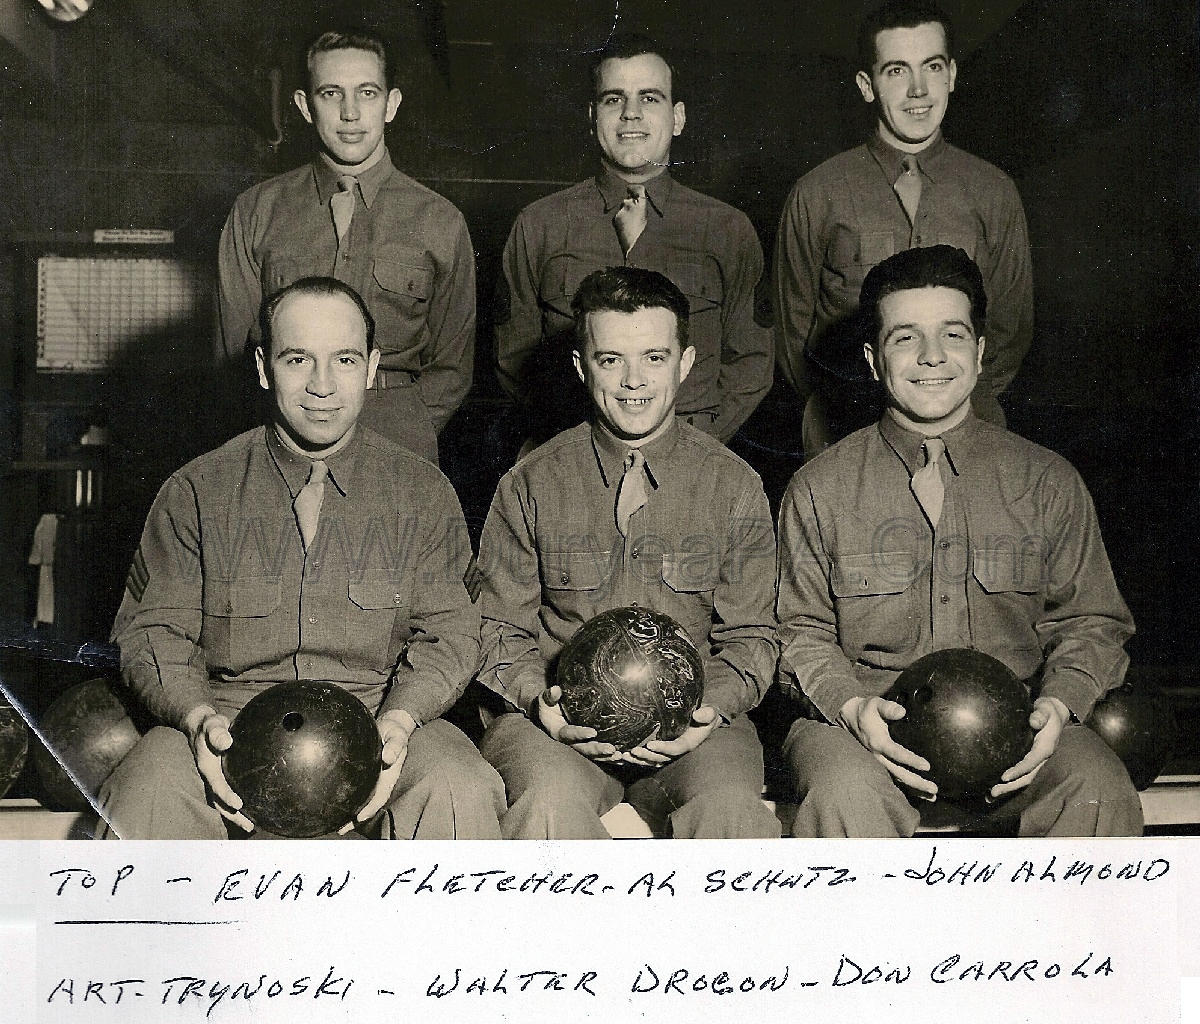 WWW.DuryeaPA.Com
TOP - EVAN FLETCHER - AL SCHUTZ - JOHN ALMOND
ART - TRYNOSKI - WALTER DROGON - DON CARROLA